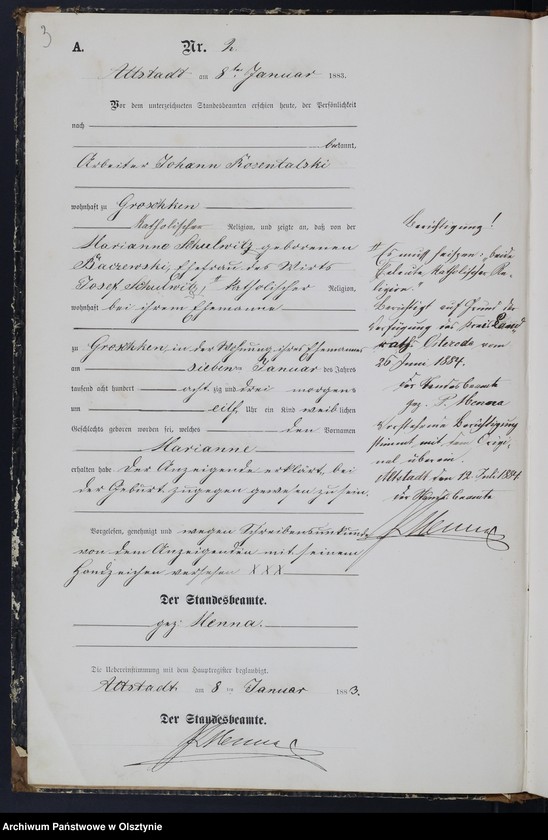 3
A. Nr. 2
Altstadt am 8ten Januar 1883.
Vor dem unterzeichneten Standesbeamten erschien heute, der Persönlichkeit
nach
bekannt,
Arbeiter Johann Rosentalski
wohnhaft zu Groschken
Katholischer Religion, und zeigte an, daß von der
Marianne Schulwitz geborenen
Baczewski, Ehefrau des Wirts
Josef Schulwitz, katholischer Religion,
wohnhaft bei ihrem Ehemanne
zu Groschken, in der Wohnung ihres Ehemannes
am sieben Januar des Jahres
tausend acht hundert acht zig und drei morgens
um eilf Uhr ein Kind weiblichen
Geschlechts geboren worden sei, welches den Vornamen
Marianne
erhalten habe. Der Anzeigende erklärt, bei
der Geburt zugegen gewesen zu sein.
Vorgelesen, genehmigt und wegen Schreibensunkunde
von dem Anzeigenden mit seinem
Handzeichen versehen XXX
Der Standesbeamte.
gez: Menna.
Die Uebereinstimmung mit dem Hauptregister beglaubigt.
Altstadt am 8ten Januar 1883.
Der Standesbeamte.
Menna
Berichtigung!
Es muß heißen: „beide
Eheleute katholischer Re-
ligion."
Berichtigt auf Grund der
Verfügung des Kreis Land
rath Osterode vom
26 Juni 1884.
der Standesbeamte
gez. P. Menna
Vorstehende Berichtigung
stimmt mit dem Origi-
nal überein.
Altstadt den 12 Juli 1884
der Standesbeamte
Menna
Archiwum Państwowe w Olsztynie